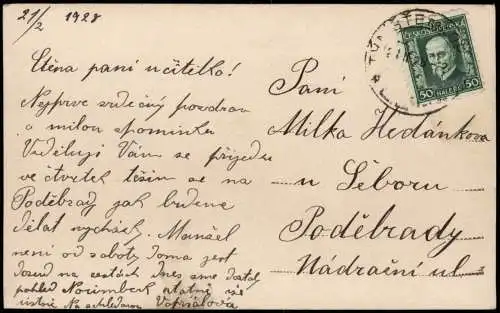 21/2 1928
Ctěná paní učitelko!
Nejprve srdečný pozdrav
a milou vzpomínku
Vám se přijedu
ve čtvrtek těším se na
Poděbrady jak budeme
dělat vycházk. Manžel
není od soboty doma jest
na cestách dnes sme dostaly
pohled Norimberk ostatní vše
ústně Na shledanou
ČESKOSLOVENSKÁ
50 HALÉŘŮ 50
Paní
Milka Hedánkova
u Séboru
Poděbrady
Nádražní ul